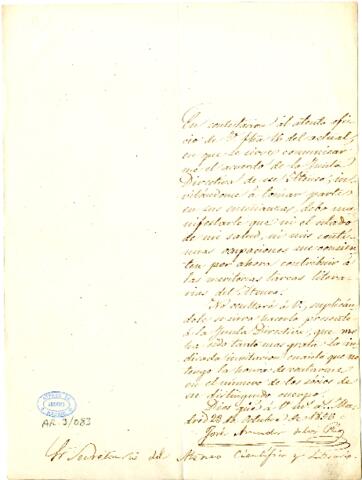 En contestacion al atento ofi-
cio de V. fha 14 del actual,
en que se sirve comunicar
me el acuerdo de la Junta
Directiva de ese Ateneo, in-
vitándome á tomar parte
en sus enseñanzas, debo ma-
nifestarle que ni el estado
de mi salud, ni mis conti-
nuas ocupaciones me consien-
ten por ahora contribuir á
las meritorias tareas litera-
rias del Ateneo.
No ocultaré á V., suplicán-
dole se sirva hacerlo presente
á la Junta Directiva, que me
ha sido tanto mas grata la in-
dicada invitacion cuanto que no
tengo la honra de contarme
en el número de los sócios de
su distinguido cuerpo.
Dios gue á V. ms. as. Ma-
drid 28 de Octubre de
José Amador de los Rios
AR-3/083
Sr Secretario del Ateneo Científico y Literario.